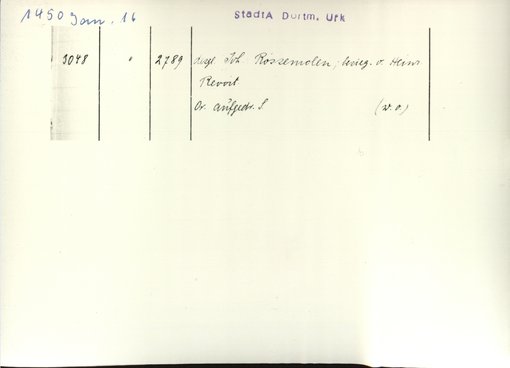 1450 Jan. 16
StadtA Dortm. Urk
3048 " 2789 desgl. Joh Rossemolen, besieg. v. Heinr
Revort
Or. aufgedr. S (w. o.)